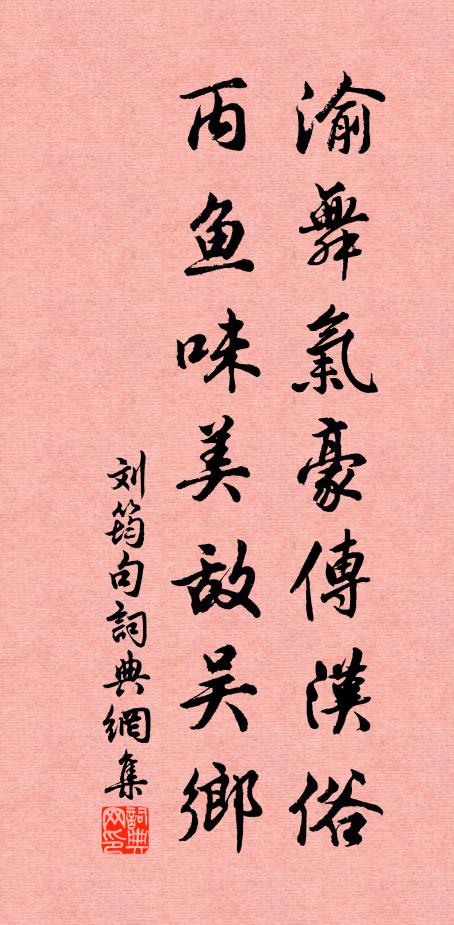 渝舞氣豪傳漢俗
丙鱼味美敌吴鄉
刘筠句詞典網集
詞典網印